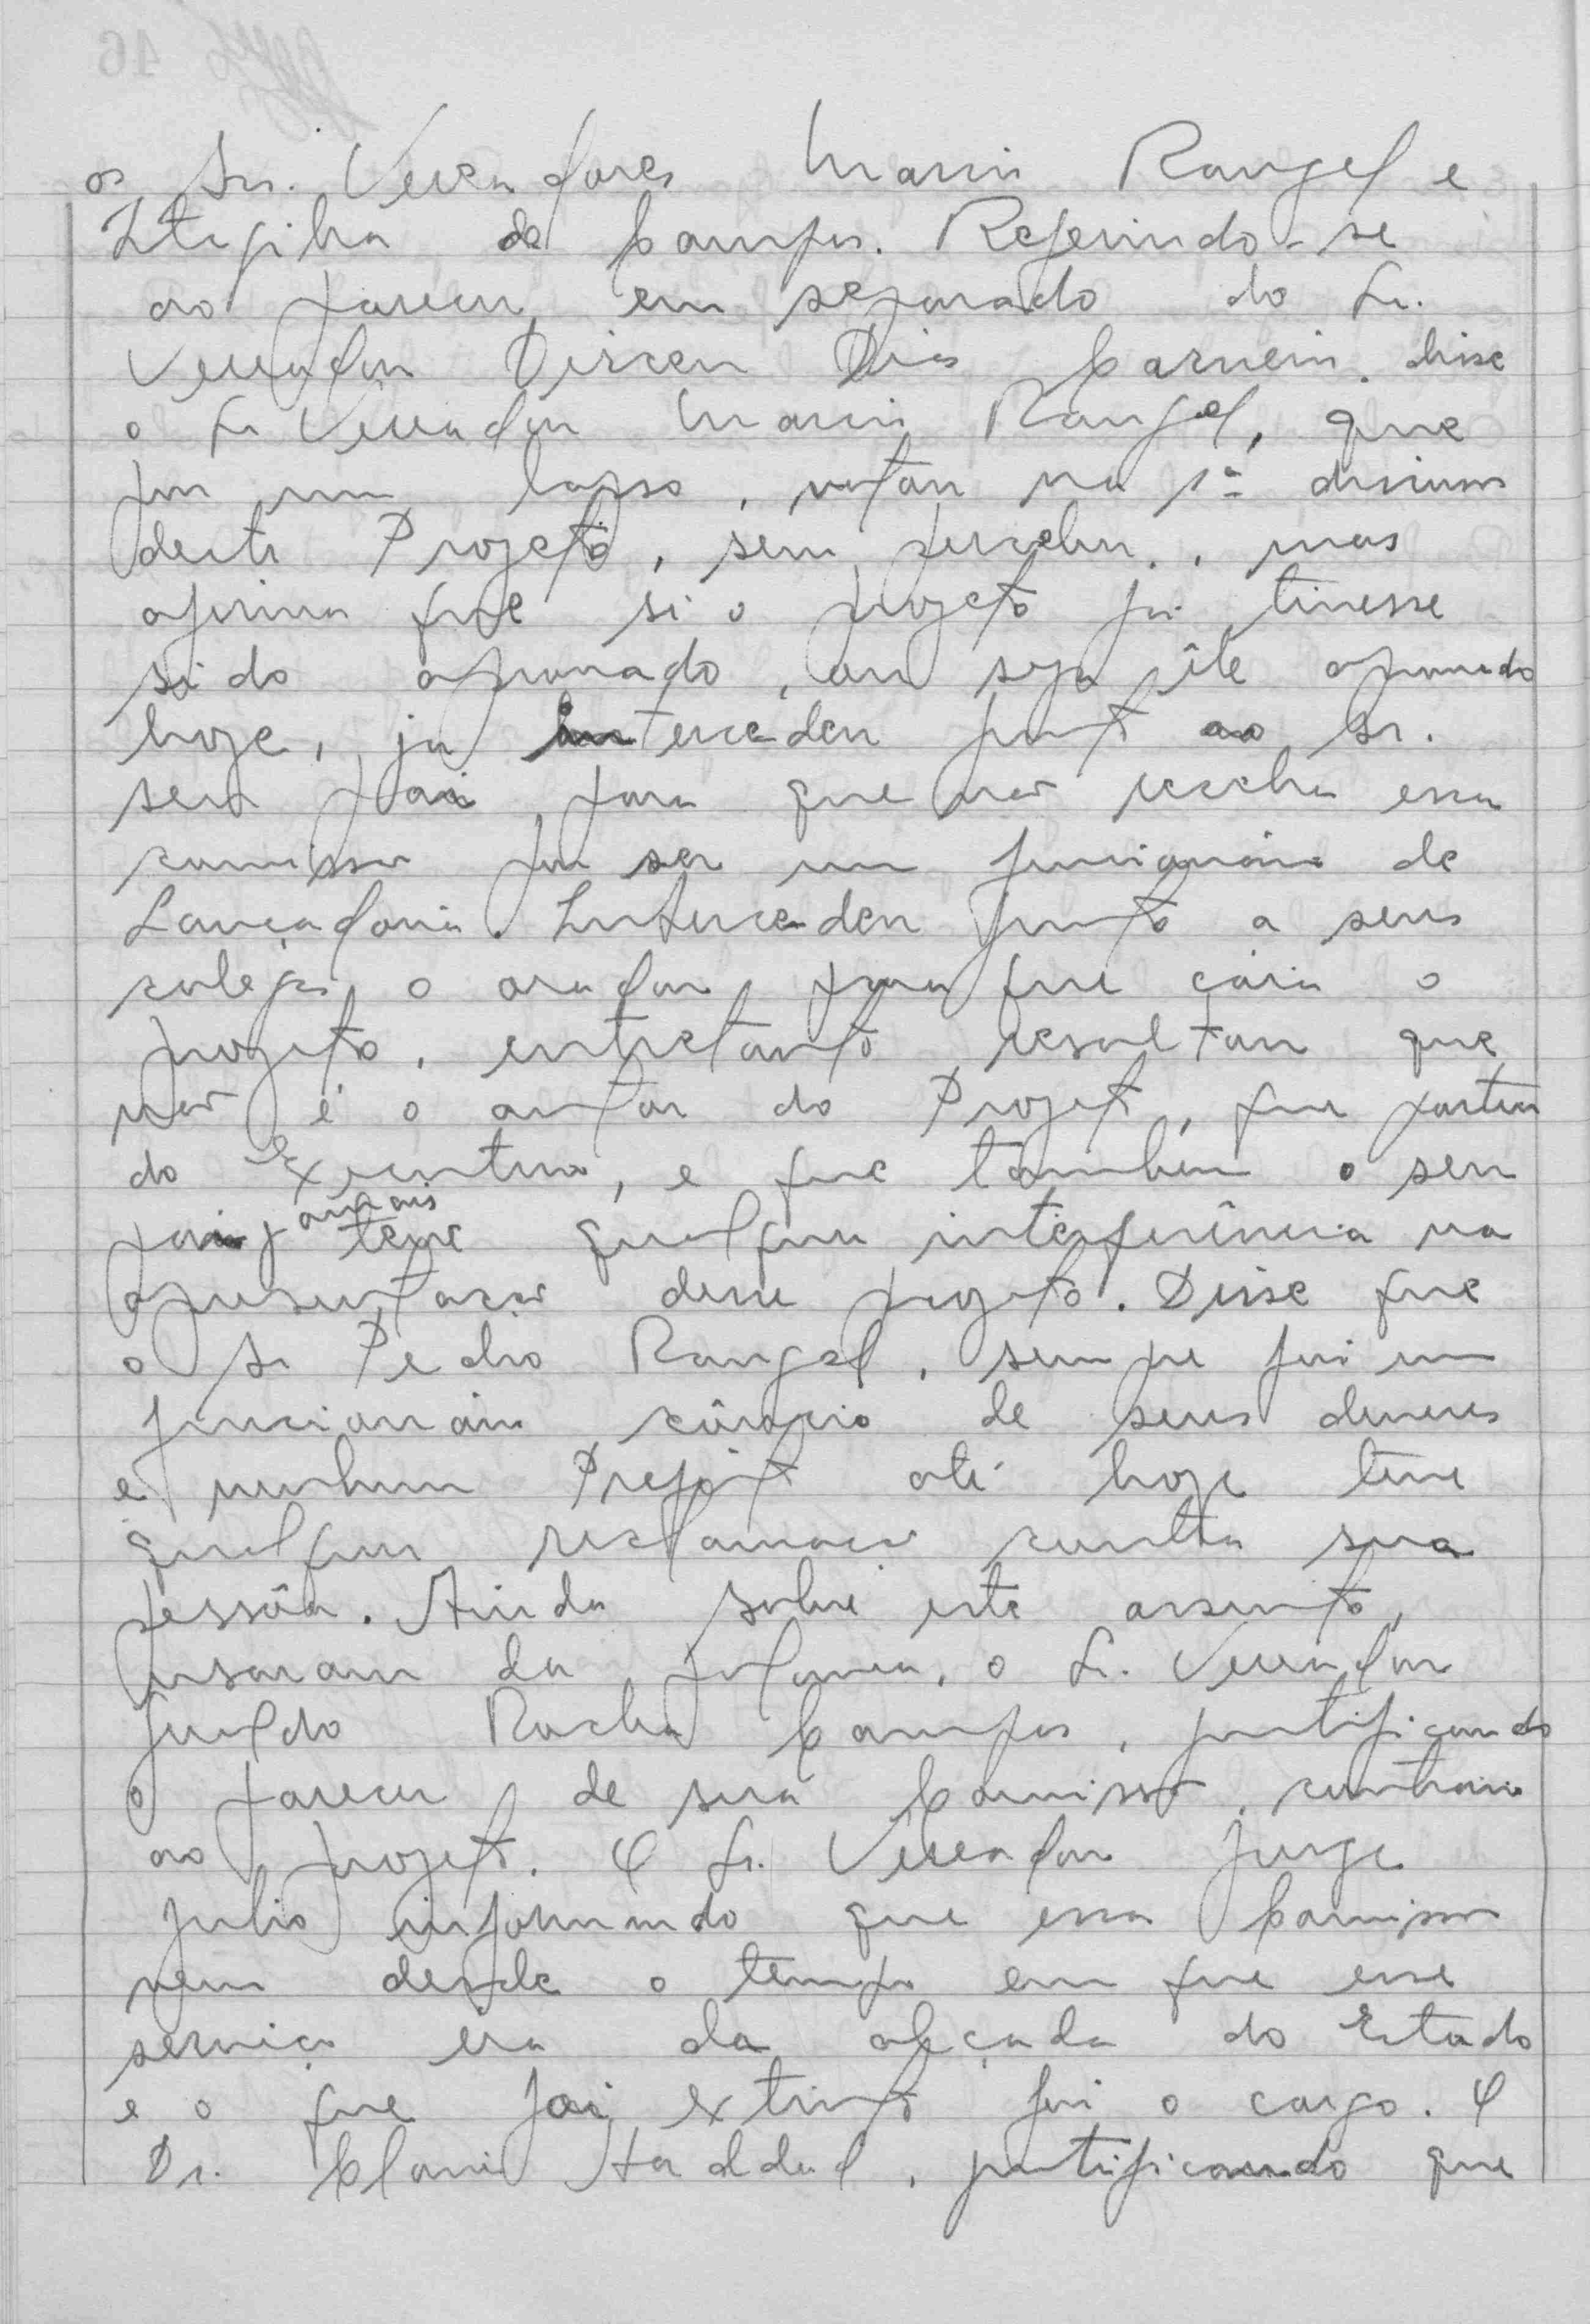 os Srs. Vereadores Marin Rangel e
Itagiba de Campos. Referindo-se
ao parecer, em separado do Sr.
Vereador Dirceu Dias Carneiro. disse
o Sr Vereador Marin Rangel, que
por um lapso, votou na 1ª discussão
deste Projeto, sem perceber., mas
afirma que si o projeto já tivesse
sido aprovado, ou seja êle aprovado
hoje, já intercedeu junto ao Sr.
seu pai, para que não receba essa
comissão por ser um funcionário de
Lançadoria. Intercedeu junto a seus
colegas o orador para que cáia o
projeto, entretanto resaltou que
não é o autor do Projeto, que partiu
do Executivo, e que também o seu
pai jamais teve qualquer interferência na
apresentação desse projeto. Disse que
o Sr Pedro Rangel, sempre foi um
funcionário cônscio de seus deveres
e nenhum Prefeito até hoje teve
qualquer reclamação contra sua
pessôa. Ainda sobre este assunto,
usaram da palavra, o Sr. Vereador
Jualdo Rocha Campos, justificando
o parecer de sua Comissão, contrário
ao projeto. O Sr. Vereador Jorge
Julio informando que essa Comissão
vem desde o tempo em que esse
serviço era da alçada do Estado
e o que foi extinto foi o cargo. O
Dr. Clovis Haddad, justificando que